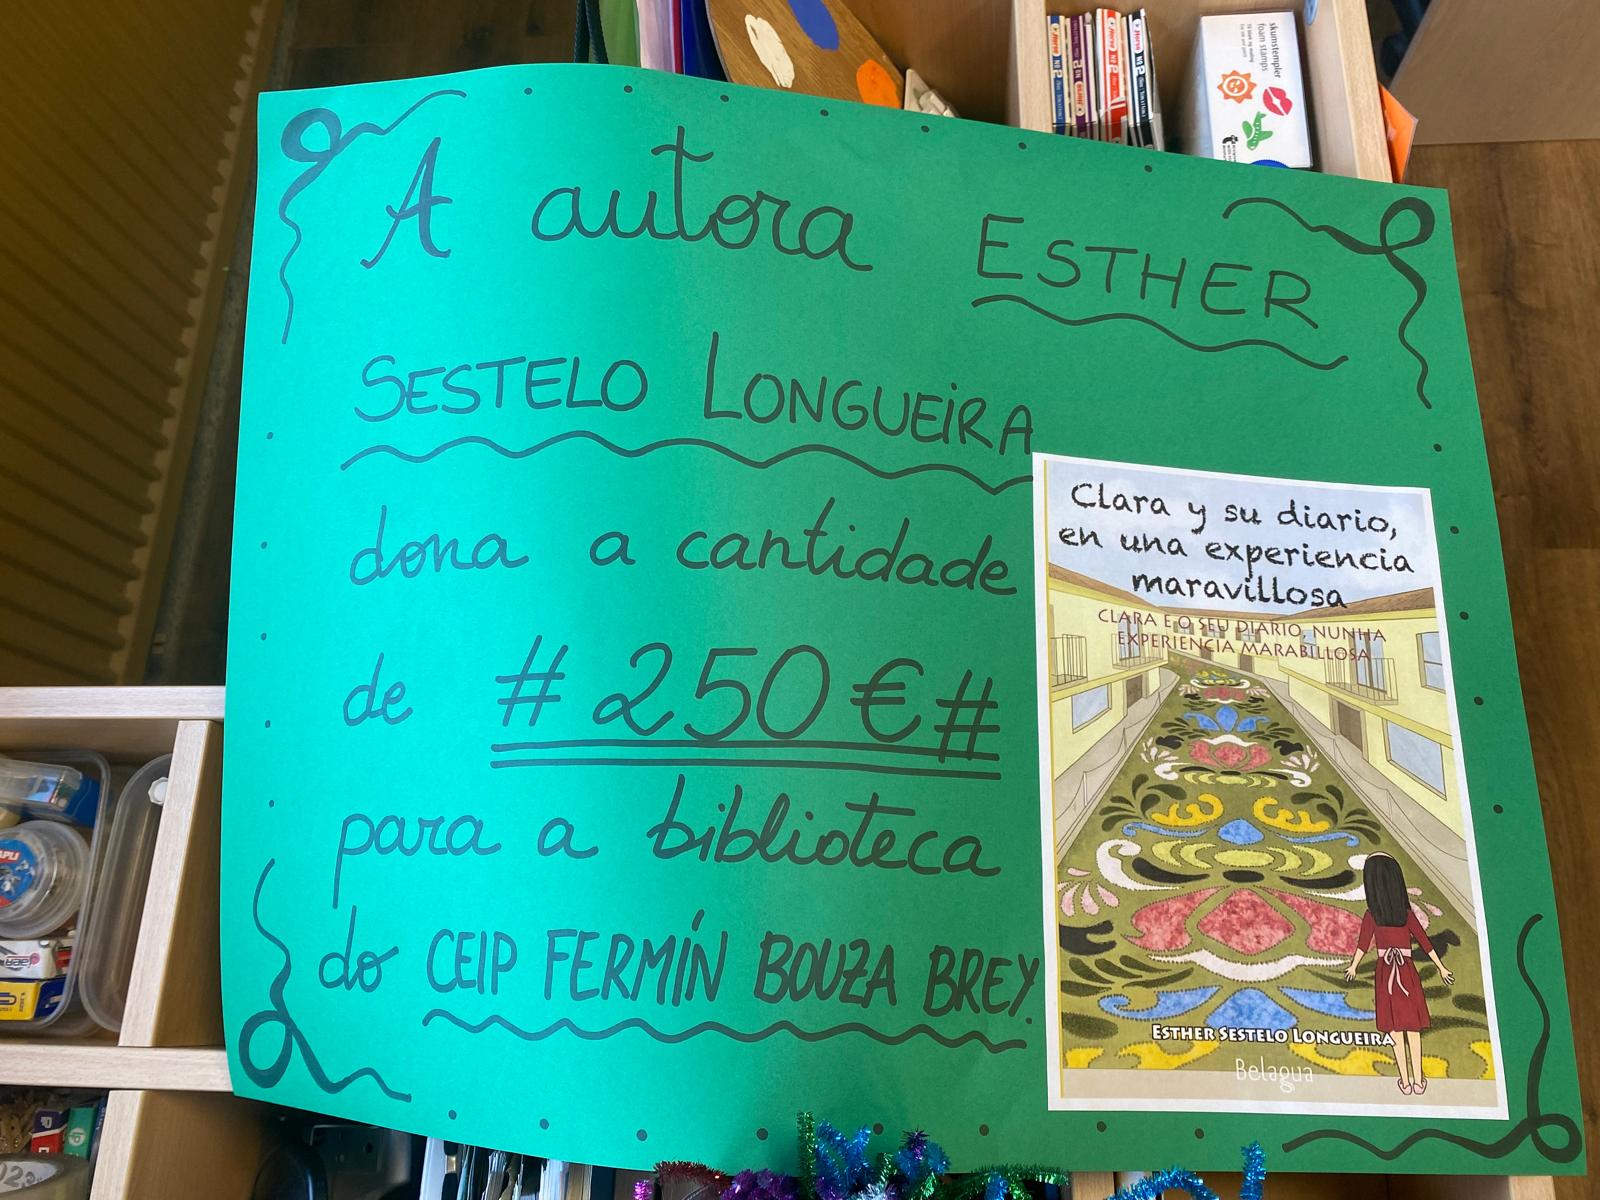 A autora ESTHER
SESTELO LONGUEIRA
dona a cantidade
de # 250 € #
para a biblioteca
do CEIP FERMÍN BOUZA BREY.
Clara y su diario,
en una experiencia
maravillosa
CLARA E O SEU DIARIO, NUNHA
EXPERIENCIA MARABILLOSA
ESTHER SESTELO LONGUEIRA
Belagua
skumstempler
foam stamps